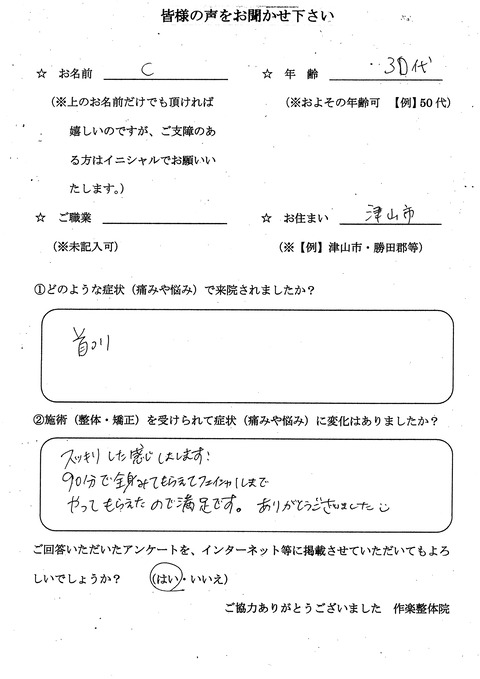 皆様の声をお聞かせ下さい
☆ お名前 C ☆ 年 齢 30代
(※上のお名前だけでも頂ければ (※おおよその年齢可 【例】50代)
嬉しいのですが、ご支障のあ
る方はイニシャルでお願いい
たします。)
☆ ご職業 ☆ お住まい 津山市
(※未記入可) (※【例】津山市・勝田郡等)
①どのような症状(痛みや悩み)で来院されましたか?
首
②施術(整体・矯正)を受けられて症状(痛みや悩み)に変化はありましたか?
スッキリした感じしします!
90分で全身みてもらえてフェイシャルまで
やってもらえたので満足です。ありがとうございました
ご回答いただいたアンケートを、インターネット等に掲載させていただいてもよろ
しいでしょうか? (はい・いいえ)
ご協力ありがとうございました 作楽整体院